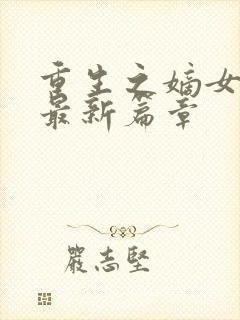 重生之嫡女
最新篇章
嚴志堅